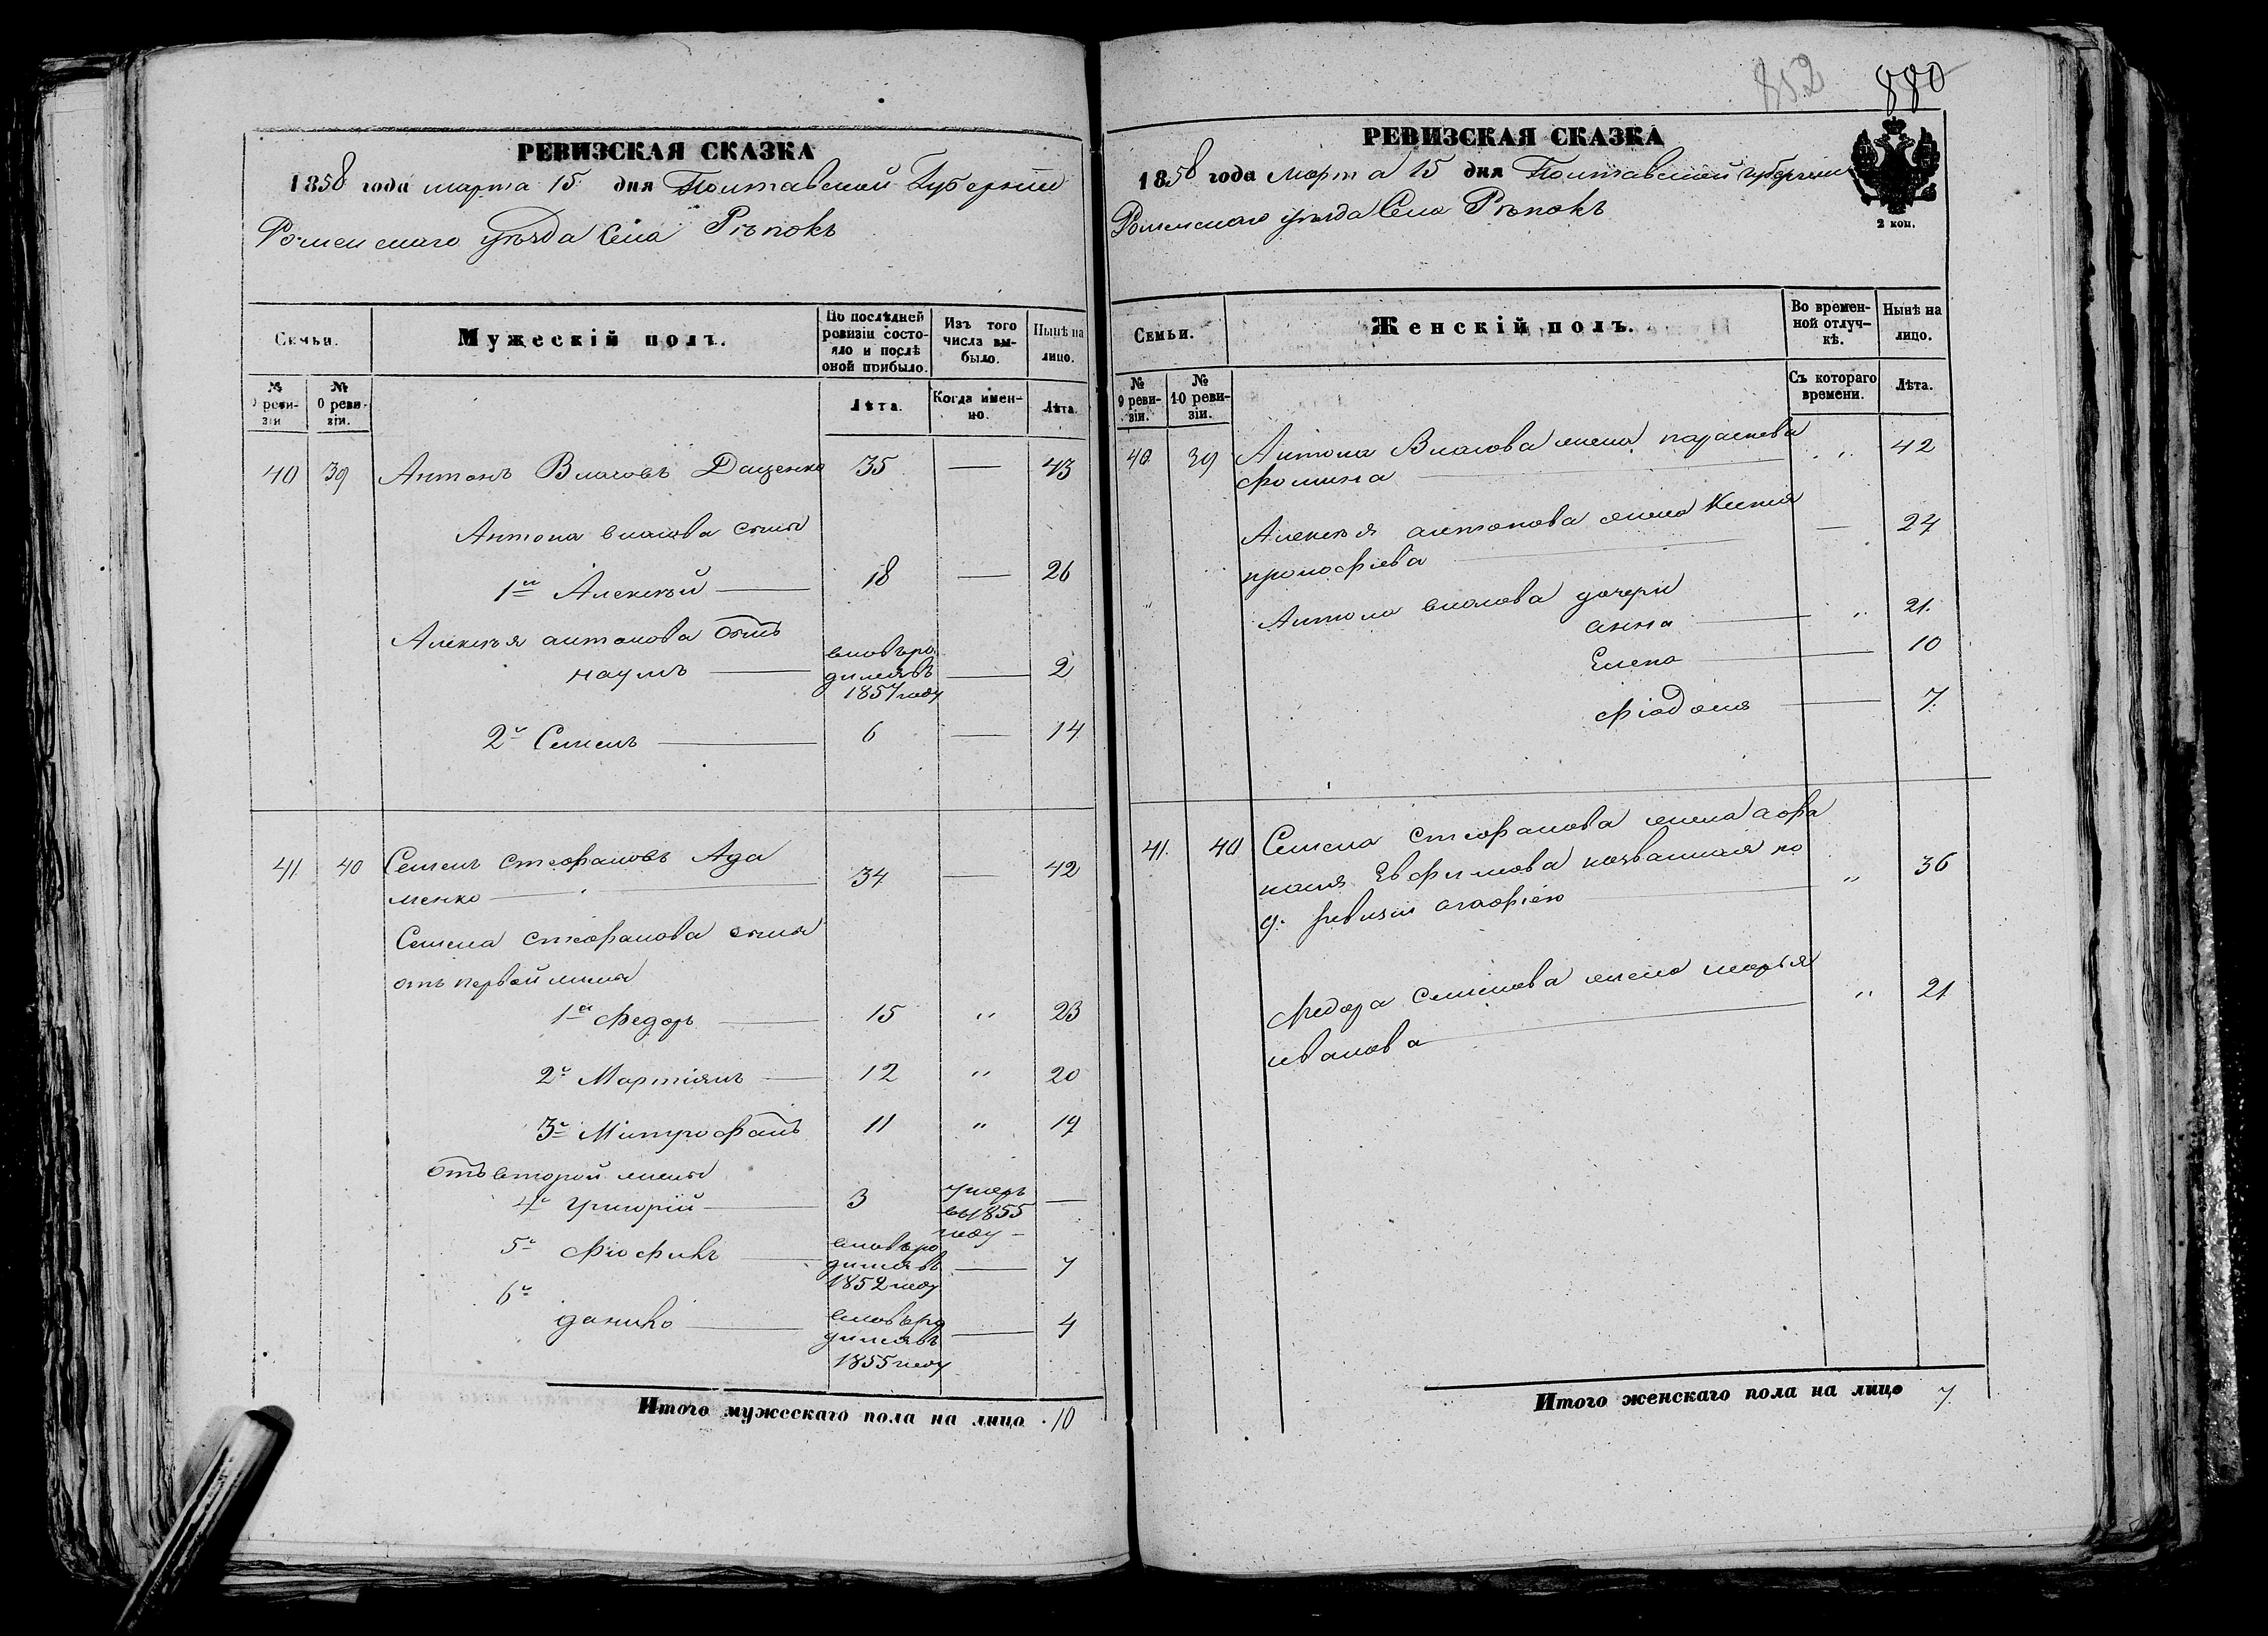 РЕВИЗСКАЯ СКАЗКА
1858 года марта 15 дня Полтавской Губернии
Роменскаго уѣзда Села Рѣпокъ
Семьи.
Мужескій полъ.
По послѣдней ревизіи состо-
яло и послѣ
оной прибыло.
Изъ того
числа вы-
было.
Нынѣ на
лицо.
№
9 реви-
зіи
№
10 реви-
зіи.
Лѣта.
Когда имен-
но.
Лѣта.
40 39 Антонъ Власовъ Даценко 35 — 43
Антона власова сыны
1й Алексѣй — 18 — 26
Алексѣя антонова сынъ
наумъ — вновь ро
дился въ
1857 году — 2
2й Семенъ — 6 — 14
41 40 Семенъ стефановъ Ада
менко — 34 — 42
Семена стефанова сыны
отъ первой жены
1й Федоръ — 15 „ 23
2й Мартіянъ — 12 „ 20
3й Митрофанъ 11 „ 19
отъ второй жены
4й Григорій — 3 умеръ
въ 1855
году —
5й Фіофилъ — вновь ро
дился въ
1852 году — 7
6й
данило — вновь ро
дился въ
1855 году — 4
Итого мужескаго пола на лицо 10
852 880
РЕВИЗСКАЯ СКАЗКА
1858 года марта 15 дня Полтавской губерніи
Роменскаго уѣзда Села Рѣпокъ
2 коп.
Семьи.
Женскій полъ.
Во времен-
ной отлуч-
кѣ.
Нынѣ на
лицо.
№
9 реви-
зіи.
№
10 реви-
зіи.
Съ котораго
времени.
Лѣта.
40 39 Антона Власова жена параскева
фомина — „ 42
Алексѣя антонова жена Ксенія
прокофіева — — 24
Антона власова дочери
анна — „ 21
Елена — 10
фіодосія — 7
41 40 Семена стефанова жена агра
Евфимова названная по
9й ревизіи агафіею — „ 36
Федора семенова жена марья
иванова — „ 21
Итого женскаго пола на лицо 7